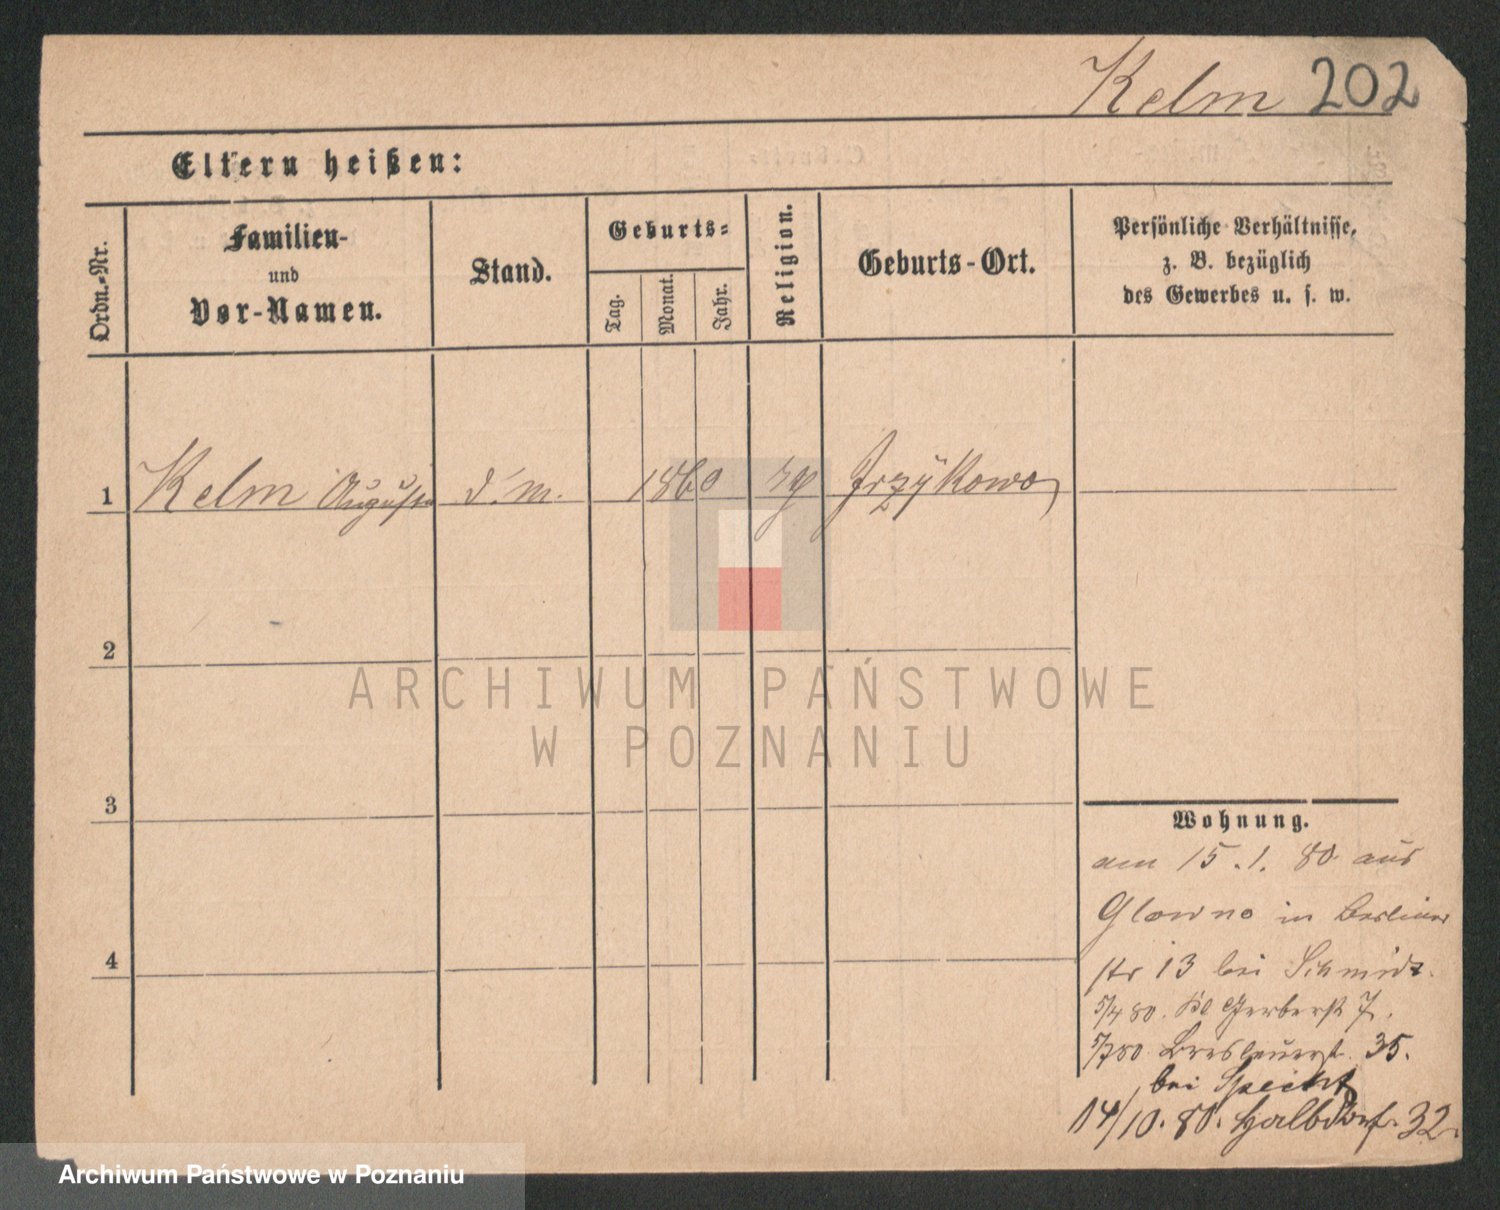 Kelm 202
Eltern heißen:
Ordn.-Nr.
Familien-
und
Vor-Namen.
Stand.
Geburts-
Tag.
Monat.
Jahr.
Religion.
Geburts-Ort.
Persönliche Verhältnisse,
z. B. bezüglich
des Gewerbes u. s. w.
1 Kelm d. m. 1860 Jrzykowo
2
3
4
Wohnung.
am 15.1.80 aus
Glowno in Berliner
str 13 bei Schmidt.
5/4 80. Kl Gerberst 7.
5/7 80 Breslauerst. 35.
bei Specht
14/10.80. Halbdorf. 32.
ARCHIWUM PAŃSTWOWE
W POZNANIU
Archiwum Państwowe w Poznaniu